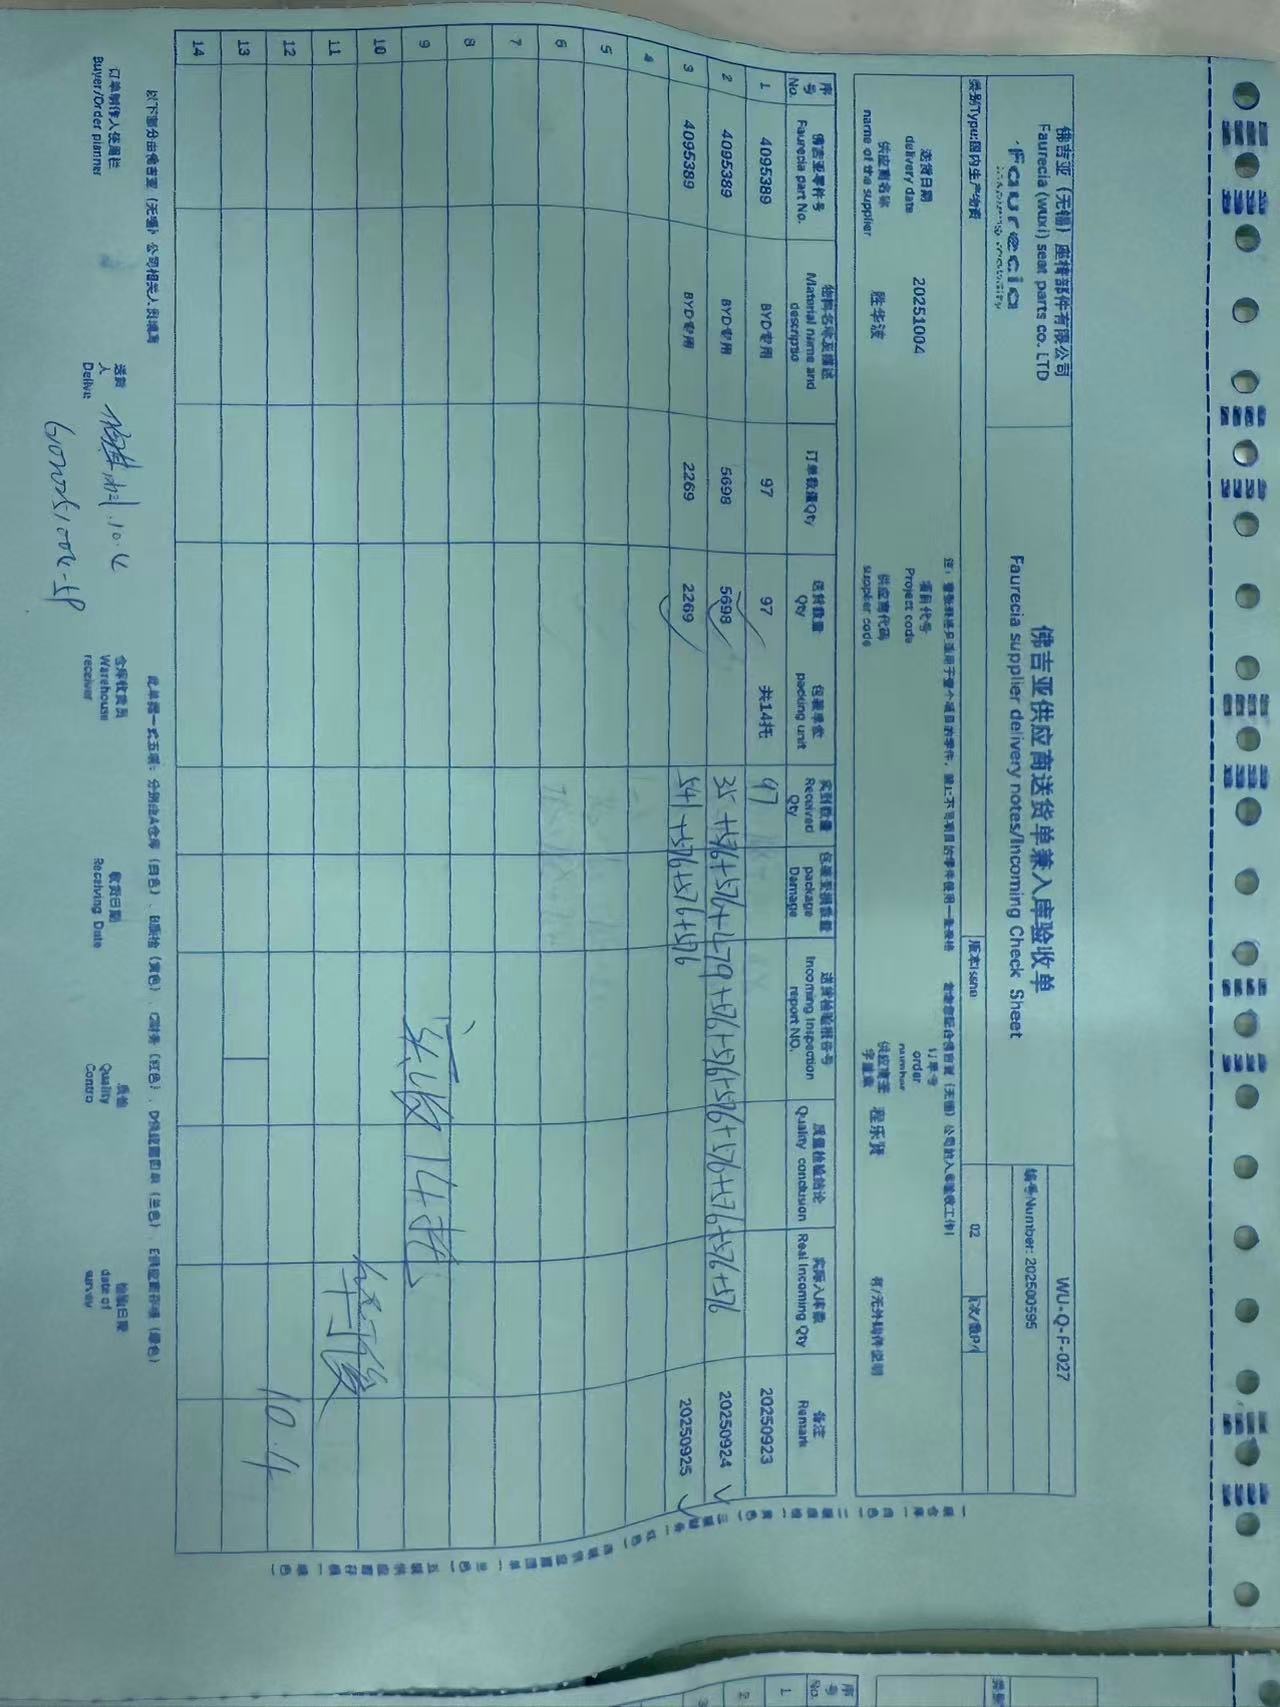 佛吉亚（无锡）座椅部件有限公司
Faurecia (wuxi) seat parts co. LTD
faurecia
佛吉亚供应商送货单兼入库验收单
Faurecia supplier delivery notes/Incoming Check Sheet
WU-Q-F-027
编号Number: 202500595
类别Type:国内生产物资
版本Issue
02
送货日期
delivery date
20251004
项目代号
Project code
订单号
order
number
供应商名称
name of the supplier
胜华波
供应商代码
supplier code
程乐贤
序号 No.
佛吉亚零件号 Faurecia part No.
物料名称及描述 Material name and descriptio
订单数量Qty
送货数量 Qty
包装单位 packing unit
实到数量 Received Qty
包装受损数量 package Damage
送货检验报告号 Incoming Inspection report NO.
质量检验结论 Quality conclusion
实际入库数 Real Incoming Qty
备注 Remark
1 4095389 BYD专用 97 97 共14托 97 20250923
2 4095389 BYD专用 5698 5698 35+576+576+479+576+576+576+576+576+576+576 20250924
3 4095389 BYD专用 2269 2269 541+576+576+576 20250925
4
5
6
7
8
9
实收14托
10
11
12
10.4
13
14
以下部分由佛吉亚（无锡）公司相关人员填写
此单据一式五联：分别由A仓库（白色）、B质检（黄色）、C财务（红色）、D供应商回单（兰色）、E供应商存根（绿色）
订单制作人使用栏
Buyer/Order planner
送货人
Delive
10.4
仓库收货员
Warehouse
receiver
收货日期
Receiving Date
质检
Quality
Contro
检验日期
date of
survey